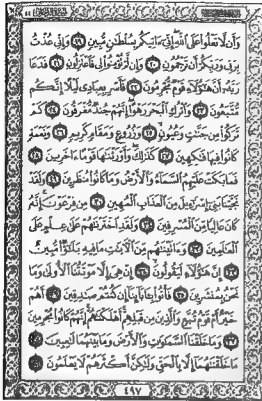 وَأَن لَّا تَعْلُوا۟ عَلَى ٱللَّهِ إِنِّىٓ ءَاتِيكُم بِسُلْطَـٰنٍ مُّبِينٍ ١٩ وَإِنِّى عُذْتُ
بِرَبِّى وَرَبِّكُمْ أَن تَرْجُمُونِ ٢٠ وَإِن لَّمْ تُؤْمِنُوا۟ لِى فَٱعْتَزِلُونِ ٢١ فَدَعَا
رَبَّهُۥٓ أَنَّ هَـٰٓؤُلَآءِ قَوْمٌ مُّجْرِمُونَ ٢٢ فَأَسْرِ بِعِبَادِى لَيْلًا إِنَّكُم
مُّتَّبَعُونَ ٢٣ وَٱتْرُكِ ٱلْبَحْرَ رَهْوًا إِنَّهُمْ جُندٌ مُّغْرَقُونَ ٢٤ كَمْ
تَرَكُوا۟ مِن جَنَّـٰتٍ وَعُيُونٍ ٢٥ وَزُرُوعٍ وَمَقَامٍ كَرِيمٍ ٢٦ وَنَعْمَةٍ
كَانُوا۟ فِيهَا فَـٰكِهِينَ ٢٧ كَذَٰلِكَ وَأَوْرَثْنَـٰهَا قَوْمًا ءَاخَرِينَ ٢٨
فَمَا بَكَتْ عَلَيْهِمُ ٱلسَّمَآءُ وَٱلْأَرْضُ وَمَا كَانُوا۟ مُنظَرِينَ ٢٩ وَلَقَدْ
نَجَّيْنَا بَنِىٓ إِسْرَٰٓءِيلَ مِنَ ٱلْعَذَابِ ٱلْمُهِينِ ٣٠ مِن فِرْعَوْنَ إِنَّهُۥ
كَانَ عَالِيًا مِّنَ ٱلْمُسْرِفِينَ ٣١ وَلَقَدِ ٱخْتَرْنَـٰهُمْ عَلَىٰ عِلْمٍ عَلَى
ٱلْعَـٰلَمِينَ ٣٢ وَءَاتَيْنَـٰهُم مِّنَ ٱلْـَٔايَـٰتِ مَا فِيهِ بَلَـٰٓؤٌا۟ مُّبِينٌ
٣٣ إِنَّ هَـٰٓؤُلَآءِ لَيَقُولُونَ ٣٤ إِنْ هِىَ إِلَّا مَوْتَتُنَا ٱلْأُولَىٰ وَمَا
نَحْنُ بِمُنشَرِينَ ٣٥ فَأْتُوا۟ بِـَٔابَآئِنَآ إِن كُنتُمْ صَـٰدِقِينَ ٣٦ أَهُمْ
خَيْرٌ أَمْ قَوْمُ تُبَّعٍ وَٱلَّذِينَ مِن قَبْلِهِمْ أَهْلَكْنَـٰهُمْ إِنَّهُمْ كَانُوا۟ مُجْرِمِينَ
٣٧ وَمَا خَلَقْنَا ٱلسَّمَـٰوَٰتِ وَٱلْأَرْضَ وَمَا بَيْنَهُمَا لَـٰعِبِينَ ٣٨
مَا خَلَقْنَـٰهُمَآ إِلَّا بِٱلْحَقِّ وَلَـٰكِنَّ أَكْثَرَهُمْ لَا يَعْلَمُونَ ٣٩
٤٩٧